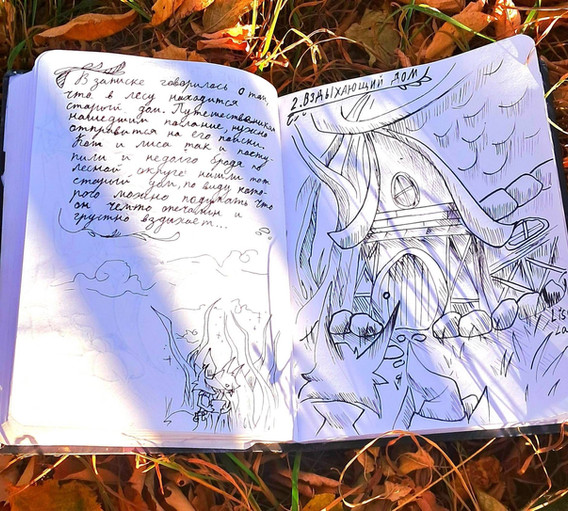 В записке говорилось о том,
что в лесу находится
старый дом. Путешественникам
нашедшим послание, нужно
отправится на его поиски.
Кот и лиса так и посту-
пили и недолго бродя по
лесной округе нашли тот
старый дом, по виду кото-
рого можно подумать что
он чемто опечалин и
грустно вздыхает...
2. ВЗДЫХАЮЩИЙ ДОМ